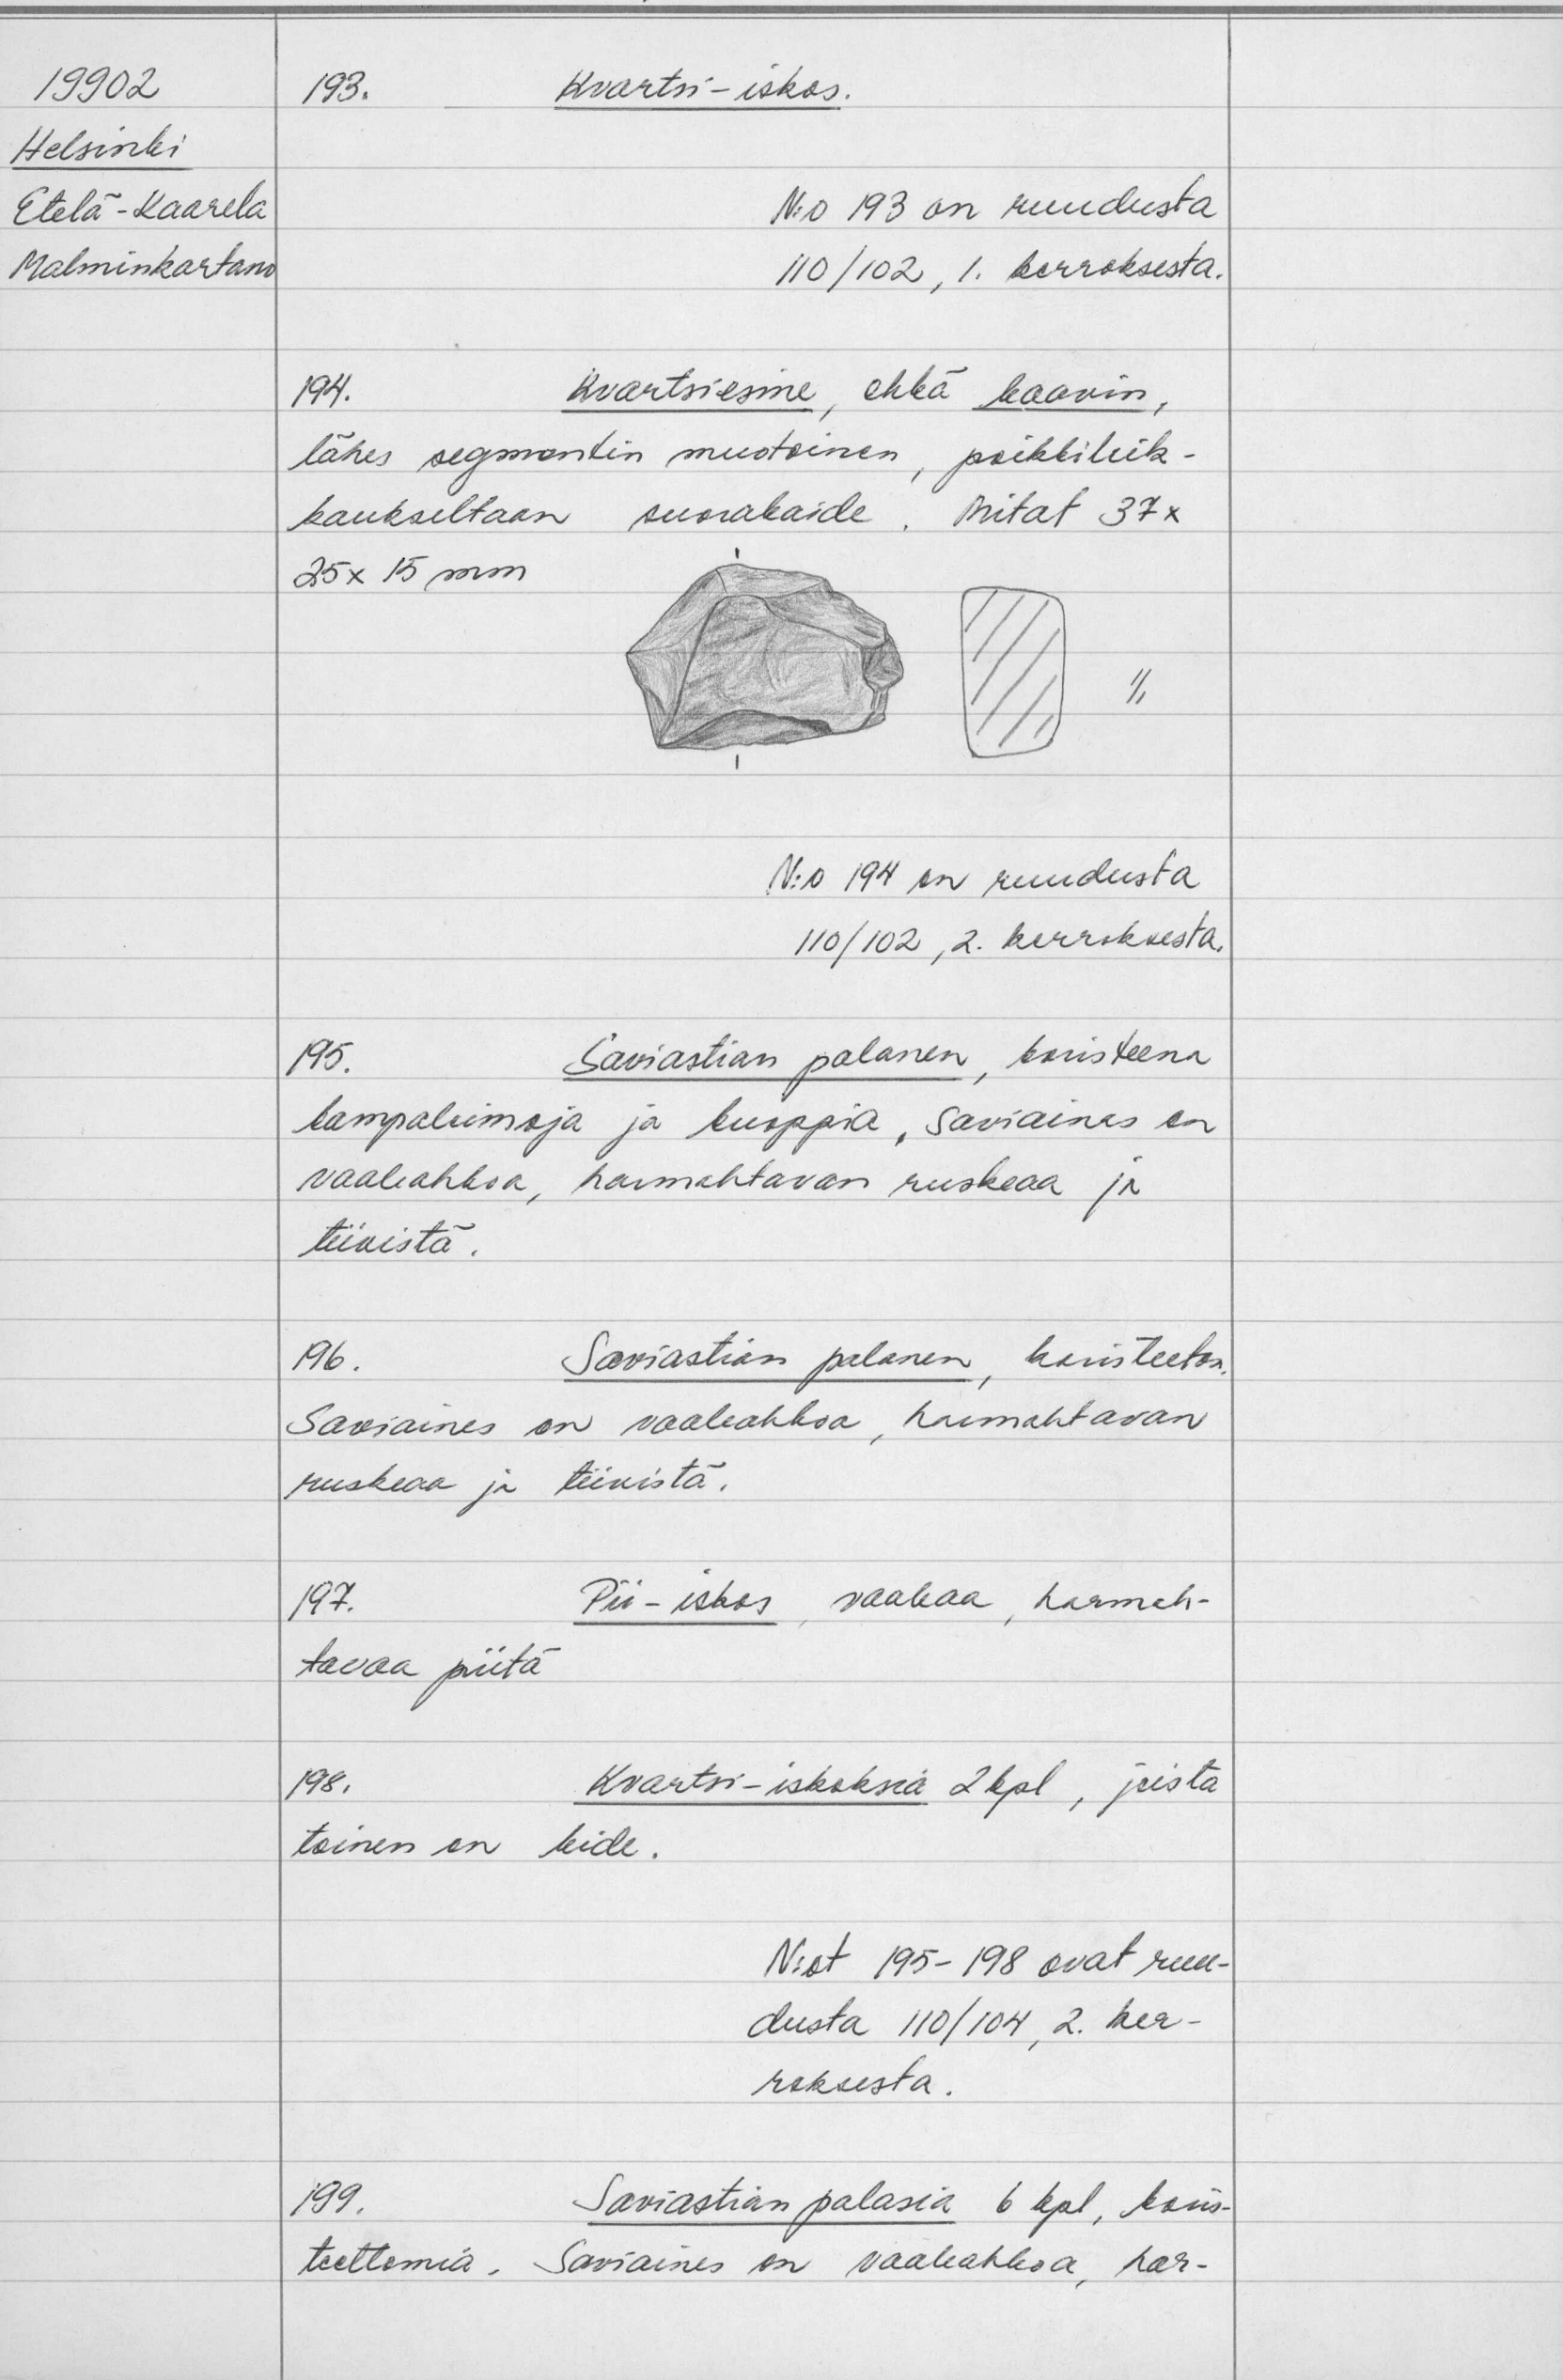 19902
Helsinki
Etelä-Kaarela
Malminkartano
193. Kvartsi-iskos.
N:o 193 on ruudusta
110/102, 1. kerroksesta.
194. Kvartsiesine, ehkä kaavin,
lähes segmentin muotoinen, poikkileik-
kaukseltaan suorakaide. Mitat 37x
25x 15 mm
1/1
N:o 194 on ruudusta
110/102, 2. kerroksesta.
195. Saviastian palanen, koristeena
kampaleimoja ja kuoppia. Saviaines on
vaaleahkoa, harmahtavan ruskeaa ja
tiivistä.
196. Saviastian palanen, koristeeton.
Saviaines on vaaleahkoa, harmahtavan
ruskeaa ja tiivistä.
197. Pii-iskos, vaaleaa, harmah-
tavaa piitä
198. Kvartsi-iskoksia 2 kpl, joista
toinen on kide.
N:ot 195-198 ovat ruu-
dusta 110/104, 2. ker-
roksesta.
199. Saviastian palasia 6 kpl, koris-
teettomia. Saviaines on vaaleahkoa, har-